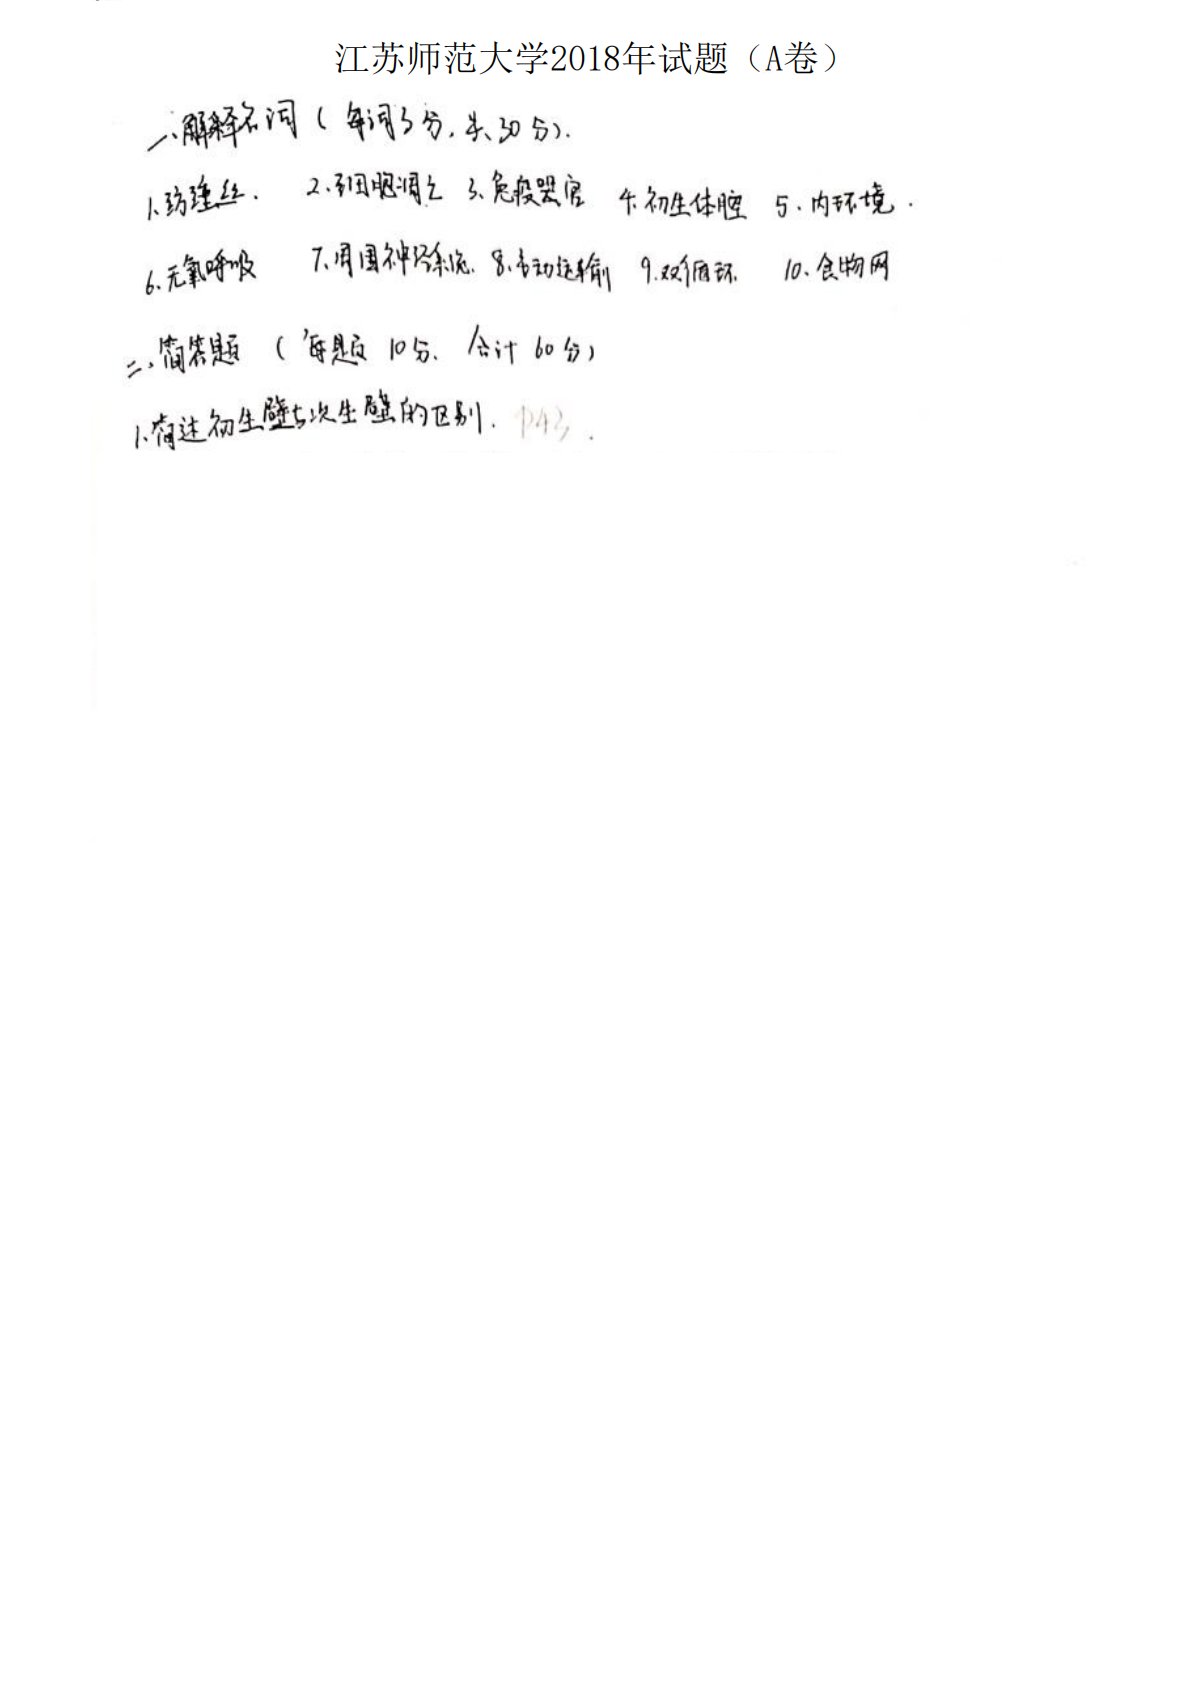 江苏师范大学2018年试题（A卷）
一、解释名词（每词3分，共30分）.
1、纺锤丝. 2、细胞凋亡 3、免疫器官 4、初生体腔 5、内环境.
6、无氧呼吸 7、周围神经系统. 8、主动运输 9、双循环 10、食物网
二、简答题（每题10分. 合计60分）
1、简述初生壁与次生壁的区别. P43.